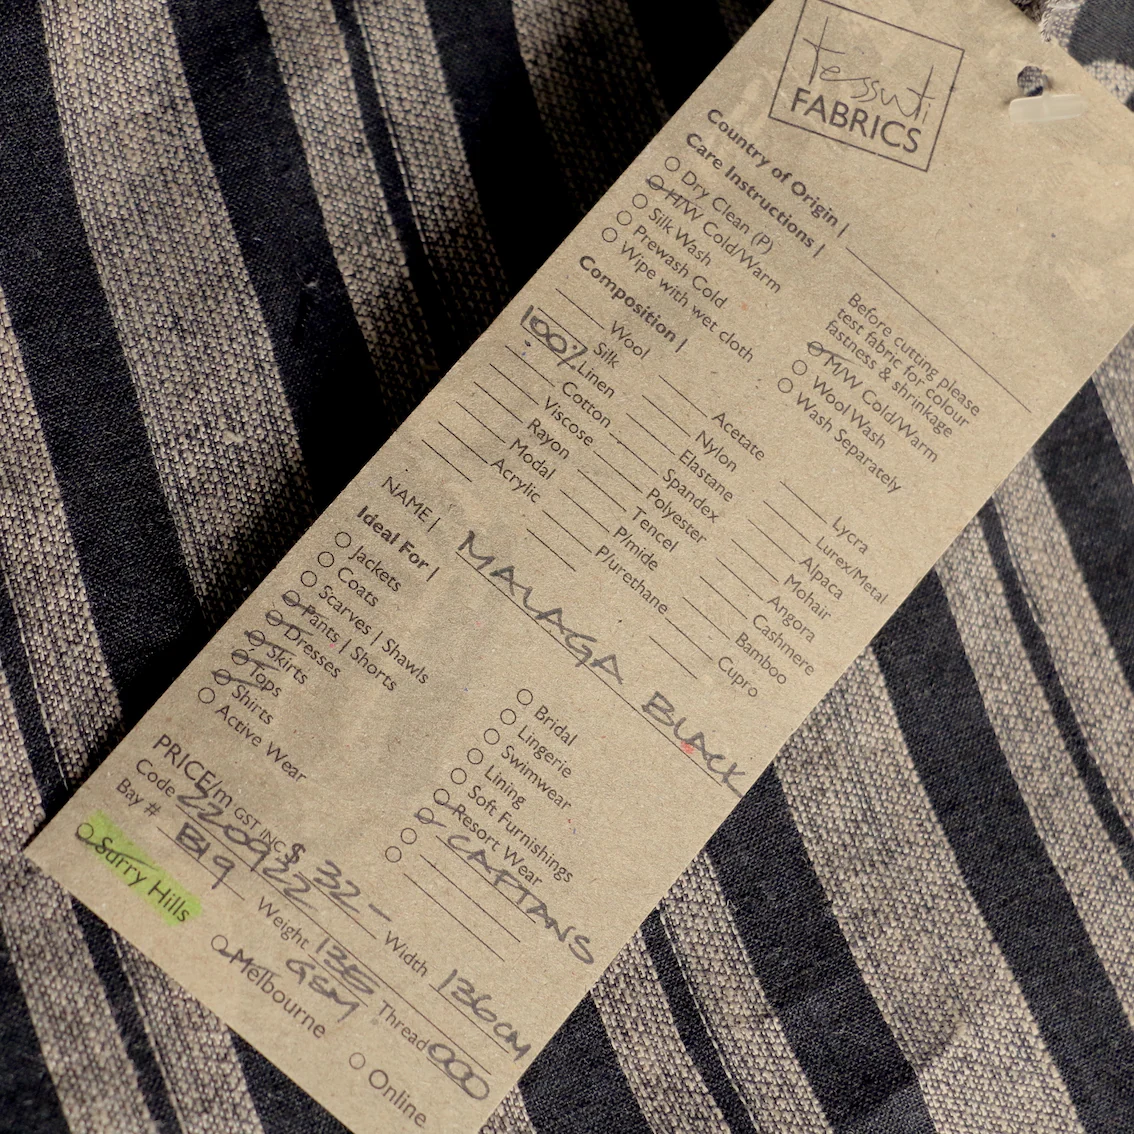 tessuti
FABRICS
Country of Origin |
Care Instructions |
Dry Clean (P)
H/W Cold/Warm
Silk Wash
Prewash Cold
Wipe with wet cloth
Before cutting please
test fabric for colour
fastness & shrinkage
M/W Cold/Warm
Wool Wash
Wash Separately
Composition |
Wool
Silk
100% Linen
Cotton
Viscose
Rayon
Modal
Acrylic
Acetate
Nylon
Elastane
Spandex
Polyester
Tencel
P/mide
P/urethane
Lycra
Lurex/Metal
Alpaca
Mohair
Angora
Cashmere
Bamboo
Cupro
NAME | MALAGA BLACK
Ideal For |
Jackets
Coats
Scarves | Shawls
Pants | Shorts
Dresses
Skirts
Tops
Shirts
Active Wear
Bridal
Lingerie
Swimwear
Lining
Soft Furnishings
Resort Wear
CAFTANS
PRICE/m GST INC $ 32-
Code 220922 Width 136CM
Bay # B19 Weight 135 GSM Thread 000
Surry Hills
Melbourne
Online